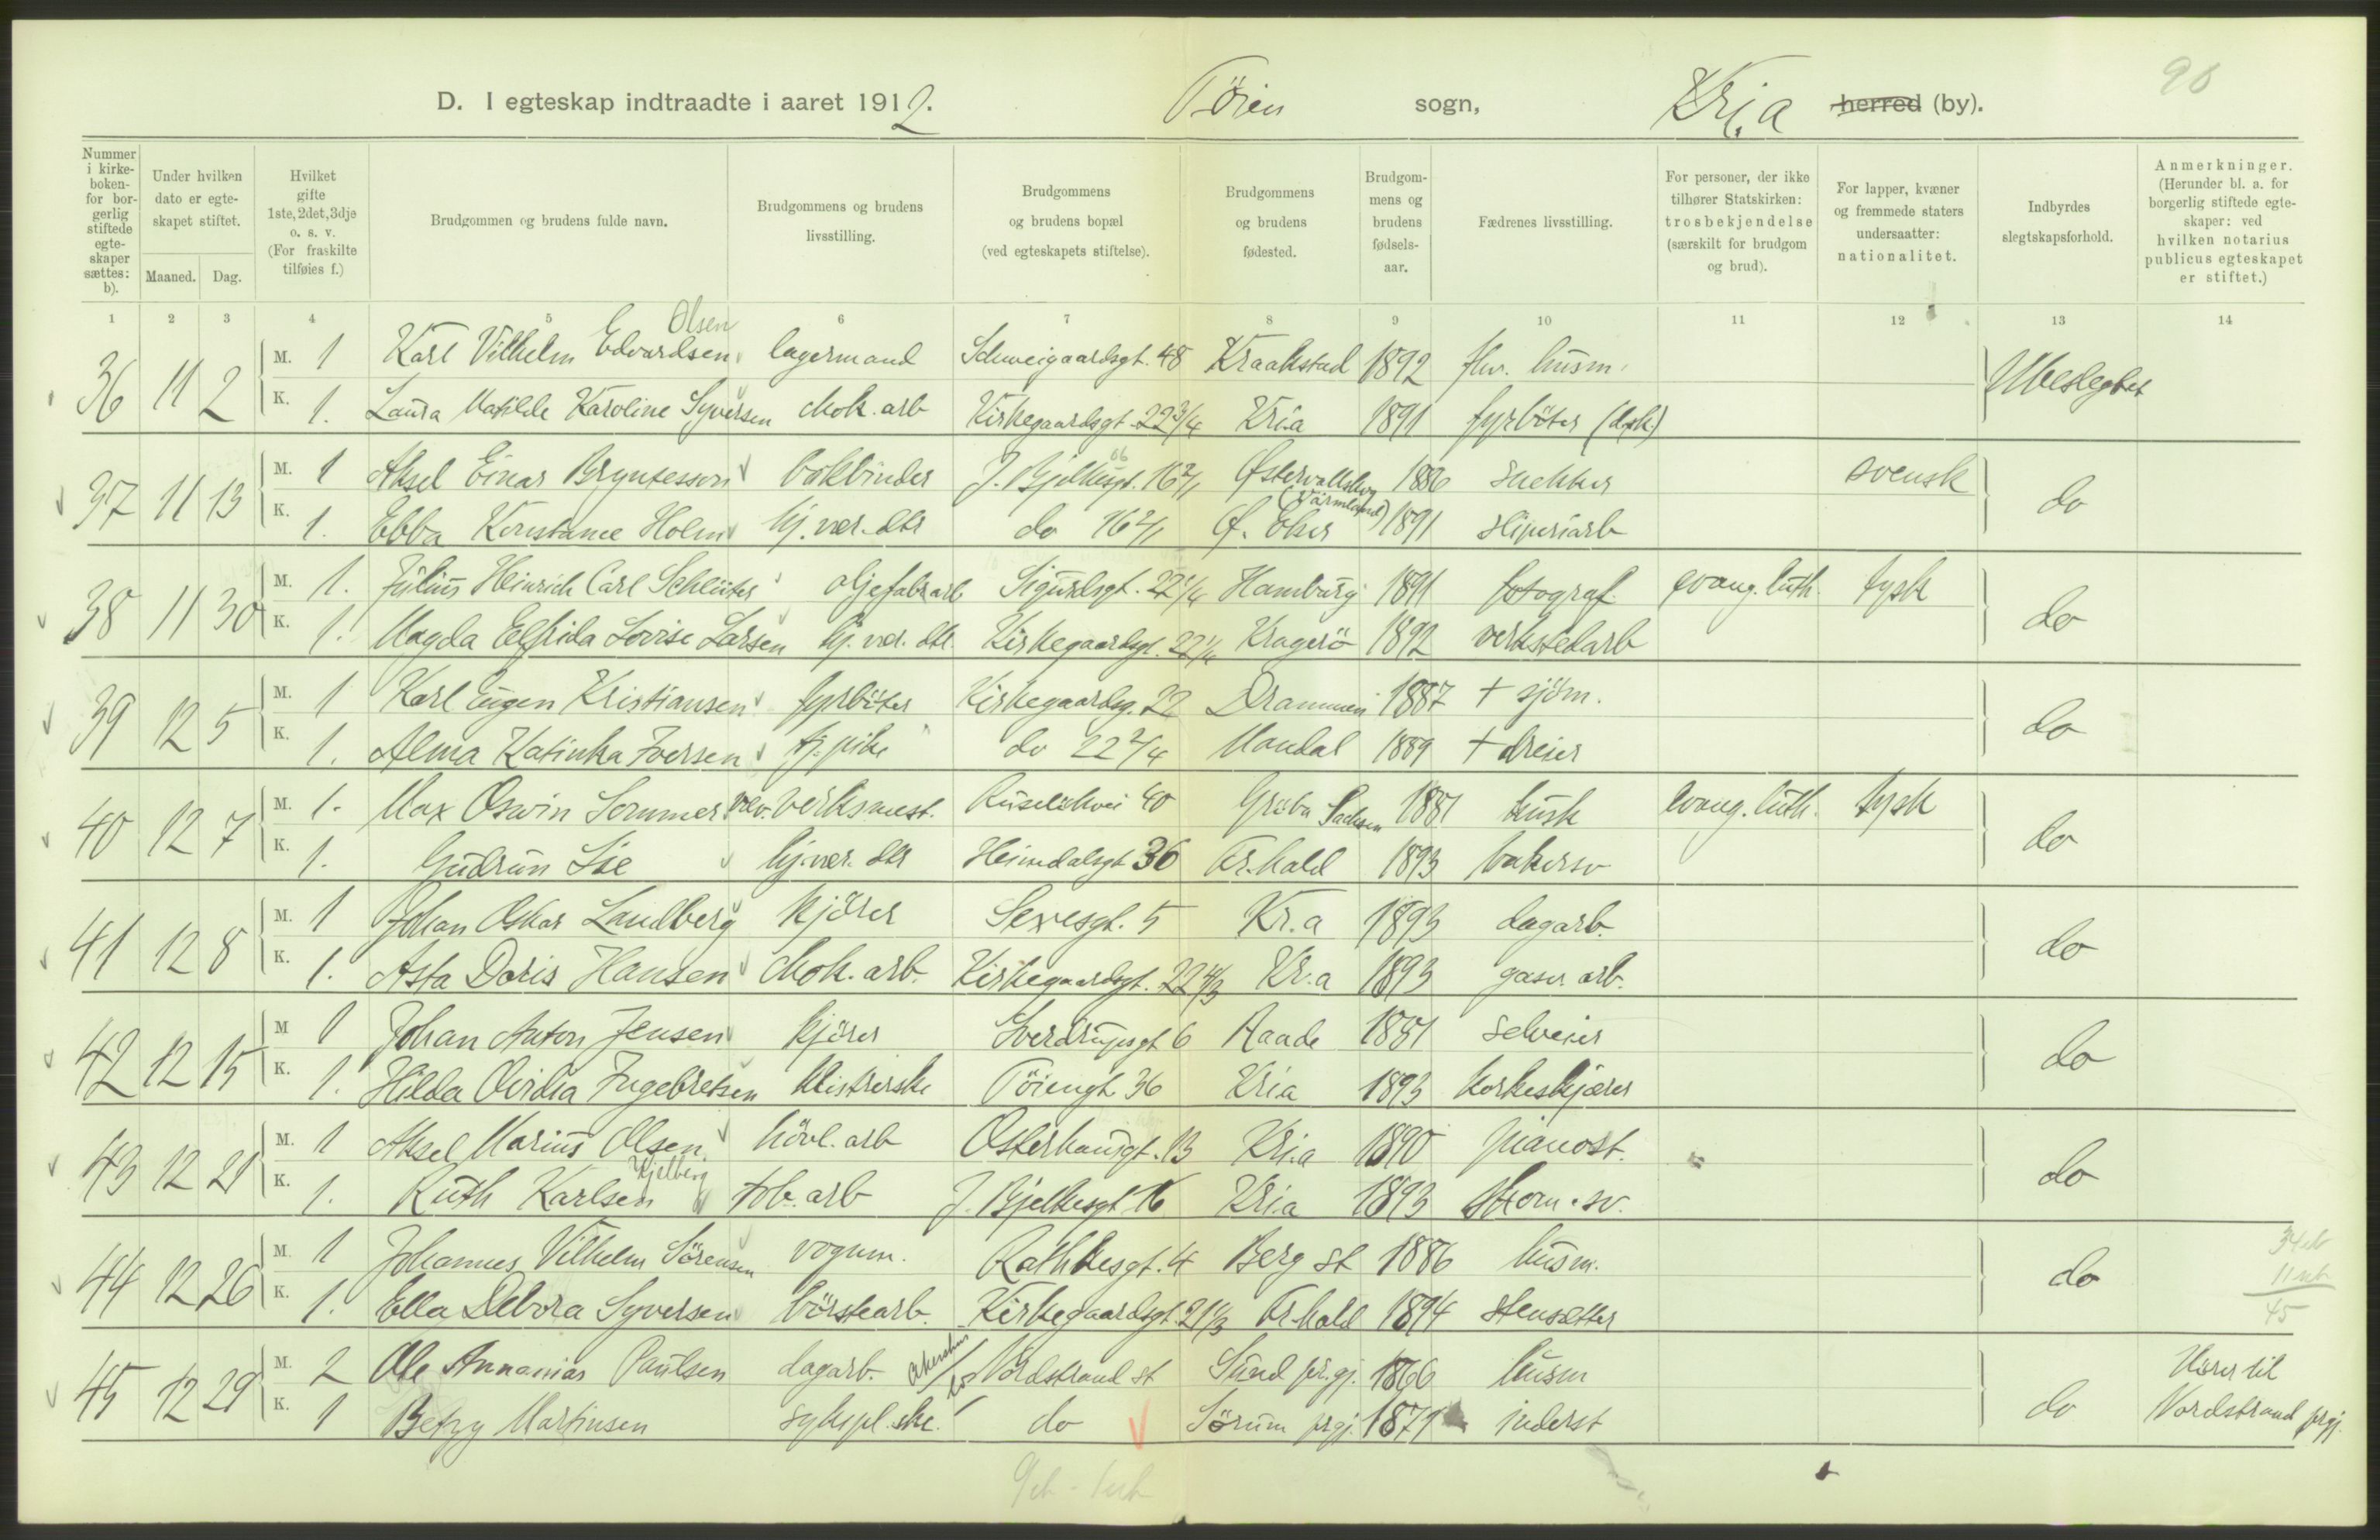 90
D. I egteskap indtraadte i aaret 1912. Töien sogn, Kr.a herred (by).
Nummer i kirke-boken- for bor-gerlig stiftede egte-skaper sættes: b). Under hvilken dato er egte-skapet stiftet. Maaned. Dag. Hvilket gifte 1ste, 2det, 3dje o. s. v. (For fraskilte tilføies f.) Brudgommen og brudens fulde navn. Brudgommens og brudens livsstilling. Brudgommens og brudens bopæl (ved egteskapets stiftelse). Brudgommens og brudens fødested. Brudgom-mens og brudens fødsels-aar. Fædrenes livsstilling. For personer, der ikke tilhører Statskirken: trosbekjendelse (særskilt for brudgom og brud). For lapper, kvæner og fremmede staters undersaatter: nationalitet. Indbyrdes slegtskapsforhold. Anmerkninger. (Herunder bl. a. for borgerlig stiftede egte-skaper: ved hvilken notarius publicus egteskapet er stiftet.)
1 2 3 4 5 6 7 8 9 10 11 12 13 14
Olsen
36 11 2 M. 1 Karl Vilhelm Edvardsen lagermand Schweigaardsgt. 48 Kraakstad 1892 fhv. husm. Ubeslegtet
K. 1. Laura Matilde Karoline Syversen chok. arb Kirkegaardsgt. 22 3/4 Kr.a 1891 fyrböter (dpsk.)
37 11 13 M. 1 Aksel Einar Bryntesson bokbinder J. Bjelkesgt. 16 2/1 Østervallskog (Värmland) 1886 snekker svensk do
K. 1. Ebba Konstance Holm hj. vær. dtr do 16 2/1 Ø. Eker 1891 sliperiarb
38 11 30 M. 1. Julius Heinrich Carl Schlüter oljefabr arb Sigurdsgt. 22 1/4 Hamburg 1891 fotograf evang. luth. tysk do
K. 1. Magda Elfrida Lovise Larsen hj. vær. dtr. Kirkegaardsgt. 22 1/4 Kragerö 1892 verkstedarb
39 12 5 M. 1 Karl Eugen Kristiansen fyrböter Kirkegaardsg. 22 Drammen 1887 + sjöm. do
K. 1. Alma Katinka Iversen tj. pike do 22 2/4 Mandal 1889 + dreier
40 12 7 M. 1. Max Oswin Sommer væv. verksmest. Ruselökvei 40 Gröba Sachsen 1881 kusk evang. luth. tysk do
K. 1. Gudrun Lie hj. vær. dtr Heimdalsgt 36 Fr.hald 1893 bakersv
41 12 8 M. 1 Johan Oskar Landberg kjörer Sexesgt. 5 Kr.a 1893 dagarb. do
K. 1. Asta Doris Hansen chok. arb. Kirkegaardsgt. 22 4/3 Kr.a 1893 gasv. arb.
42 12 15 M 1 Johan Anton Jensen kjörer Sverdrupsgt 6 Raade 1881 selveier do
K. 1. Hilda Ovidia Ingebretsen klistrerske Töiengt 36 Kr.a 1893 korkeskjærer
43 12 21 M. 1 Aksel Marius Olsen hövl. arb Osterhausgt. 13 Kr.a 1890 pianost. do
Kjelberg
K. 1. Ruth Karlsen tob. arb J. Bjelkesgt 16 Kr.a 1893 skom. sv.
44 12 26 M. 1 Johannes Vilhelm Sörensen vognm. Rathkesgt. 4 Berg st 1886 husm. do
K. 1. Ella Debora Syversen börstearb. Kirkegaardsgt. 21 1/3 Fr.hald 1894 stensætter
11
45
45 12 29 M. 2 Ole Annanias Paulsen dagarb. Akershus Nordstrand st Sund pr.gj. 1866 husm do Hører til Nordstrand prgj.
K. 1 Betzy Martinsen sykepl. ske. do Sörum prgj. 1871 inderst